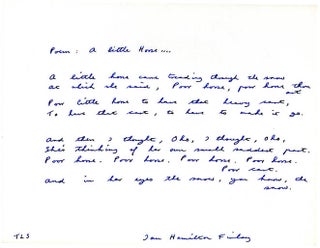 Poem: A little Horse....
A little horse came treading through the snow
At which she said, Poor horse, poor horse thou
art
Poor little horse to have that heavy cart,
To have that cart, to have to make it go.
And then I thought, Oho, I thought, Oho,
She's thinking of her own small saddest part.
Poor horse. Poor horse. Poor horse. Poor horse.
Poor cart.
And in her eyes the snow, you know, the
snow.
TLS
Ian Hamilton Finlay